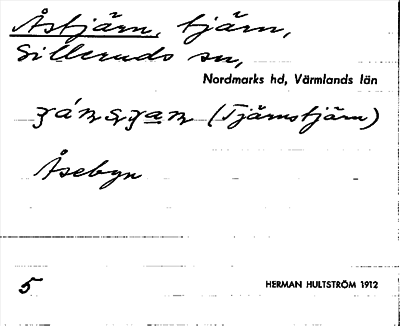 Åstjärn, tjärn,
Silleruds sn,
Nordmarks hd, Värmlands län
(Tjärnstjärn)
Åsebyn
5 HERMAN HULTSTRÖM 1912